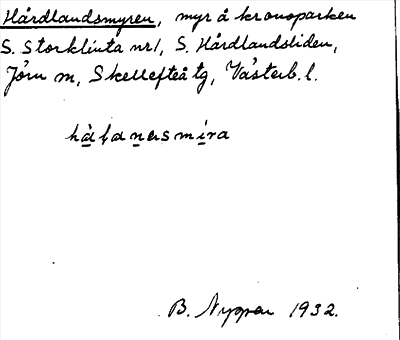 Hårdlandsmyren, myr å kronoparken
S. Storklinta nr 1, S. Hårdlandsliden,
Jörn m, Skellefteå tg, Västerb. l.
B. Nyman 1932.